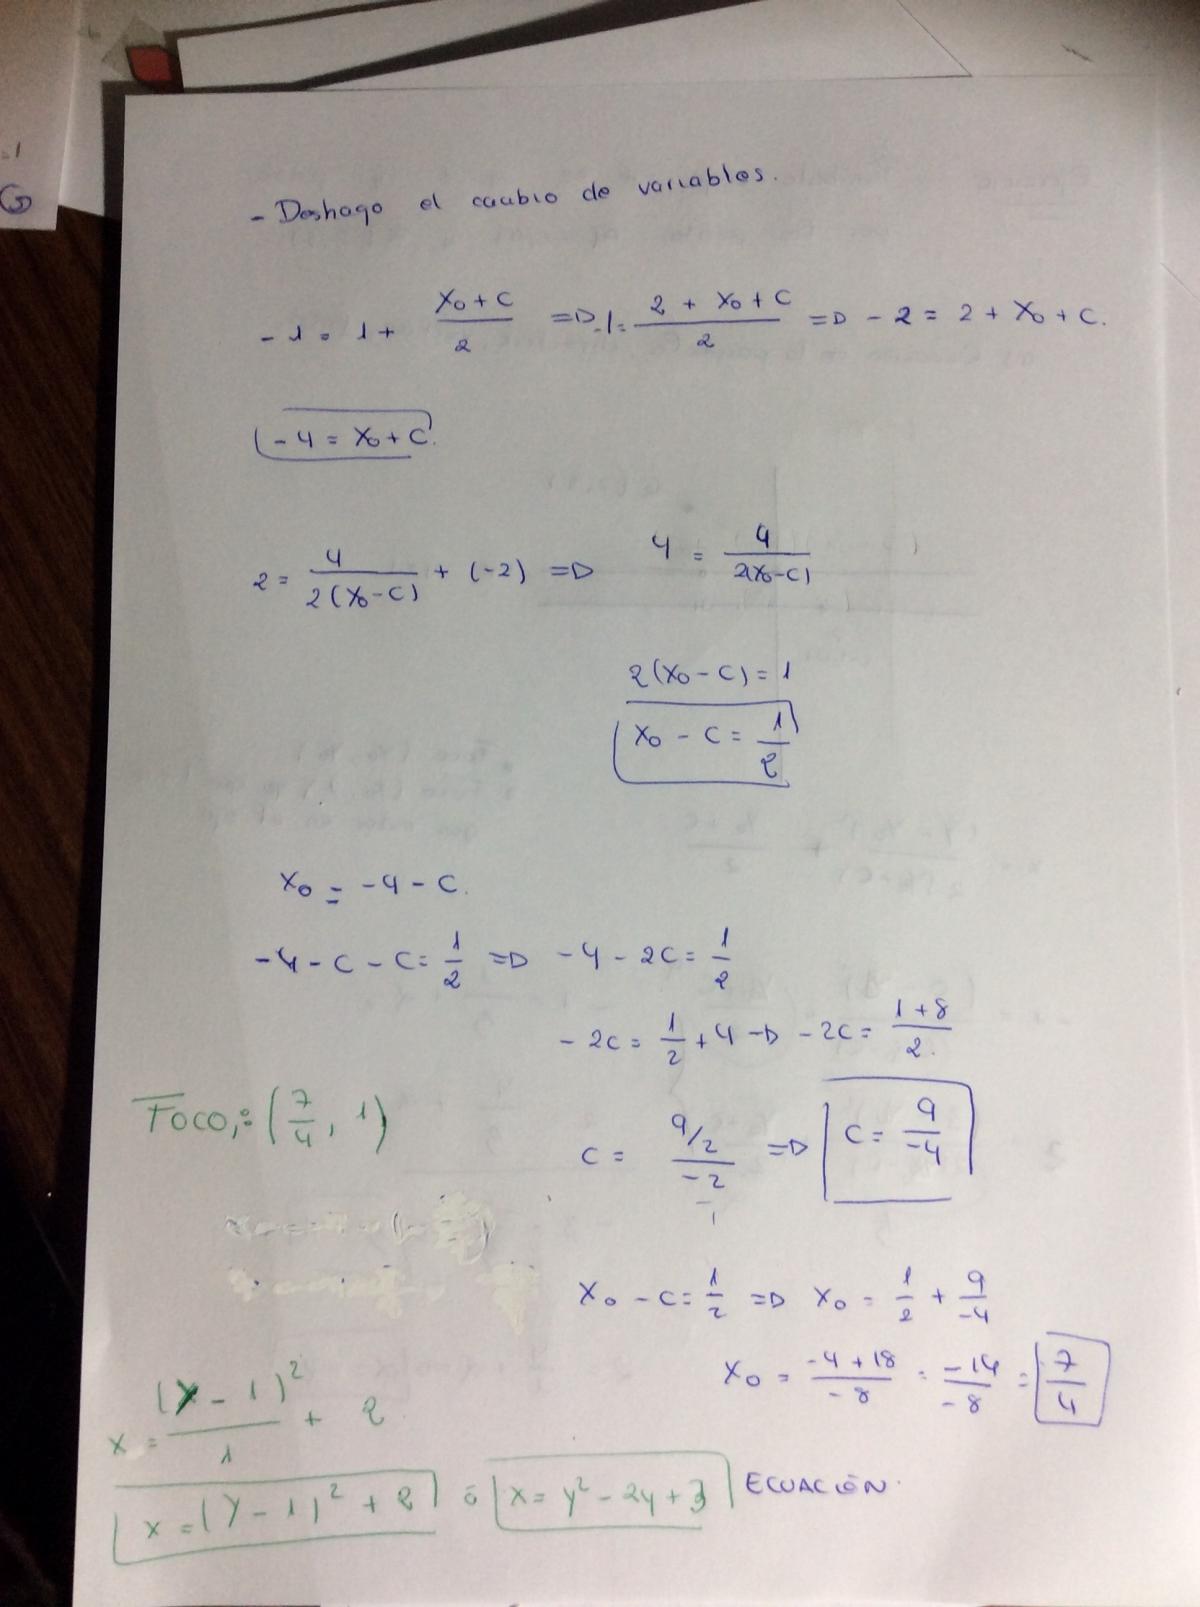 - Deshago el cambio de variables.
- 1 = 1 + (x₀ + c)/2 => -1 = (2 + x₀ + c)/2 => - 2 = 2 + x₀ + c.
- 4 = x₀ + c.
2 = 4/(2(x₀ - c)) + (-2) => 4 = 4/(2(x₀ - c))
2(x₀ - c) = 1
x₀ - c = 1/2
x₀ = -4 - c.
-4 - c - c = 1/2 => -4 - 2c = 1/2
- 2c = 1/2 + 4 -> - 2c = (1+8)/2.
Foco,: (7/4, 1)
c = (9/2)/(-2) => c = 9/-4
x₀ - c = 1/2 => x₀ = 1/2 + 9/-4
x₀ = (-4+18)/-8 = -14/-8 = 7/4
x = (y - 1)²/1 + 2
x = (y - 1)² + 2 ó x = y² - 2y + 3 ECUACIÓN.